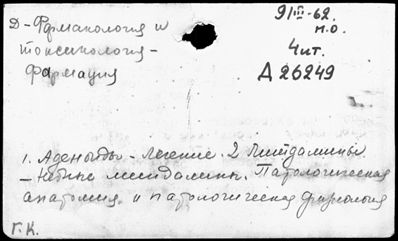 Д-Фармакология и
токсикология-
фармация
9/III-62.
м.о.
4 чит.
Д 26249
1. Аденоиды - Лечение. 2 Миндалины
- Небные миндалины. Патологическая
анатомия и патологическая физиология
Г.К.